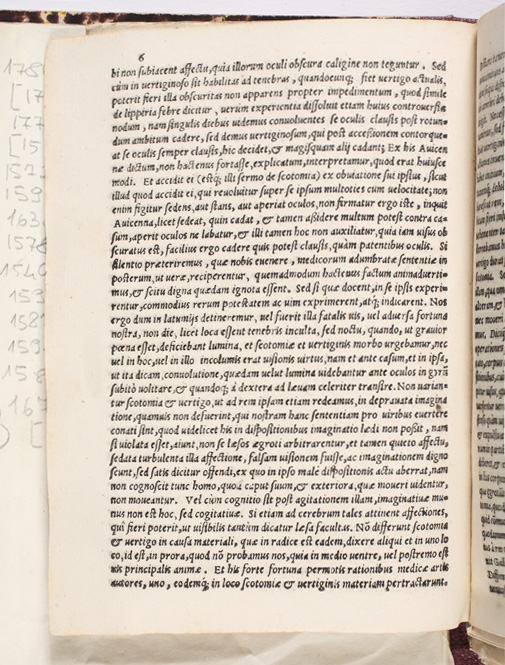 6
bi non subiacent affectu, quia illorum oculi obscura caligine non teguntur. Sed
cùm in vertiginoso sit habilitas ad tenebras, quandocunq; fiet vertigo actualis,
poterit fieri illa obscuritas non apparens propter impedimentum, quod simile
de lippiria febre dicitur, uerùm experientia dissoluit etiam huius controuersiæ
nodum, nam singulis diebus uidemus conuoluentes se oculis clausis post rotun-
dum ambitum cadere, sed demus vertiginosum, qui post accessionem contorque-
at se oculis semper clausis, hic decidet, & magisquam alij cadant; Ex his Auicen
næ dictum, non hactenus fortasse, explicatum, interpretamur, quod erat huiusce
modi. Et accidit ei (estq; illi sermo de scotomia) ex obuiatione sui ipsius, sicut
illud quod accidit ei, qui reuoluitur super se ipsum multoties cum uelocitate; non
enim figitur sedens, aut stans, aut aperiat oculos, non firmatur ergo iste, inquit
Auicenna, licet sedeat, quin cadat, & tamen assidere multum potest contra ca-
sum, aperit oculos ne labatur, & illi tamen hoc non auxiliatur, quia iam uisus ob
scuratus est, facilius ergo cadere quis potest clausis, quàm patentibus oculis. Si
silentio præteriremus, quæ nobis euenere, medicorum adumbratæ sententiæ in
posterum, ut veræ, reciperentur, quemadmodum hactenus factum animaduerti-
mus, & scitu digna quædam ignota essent. Sed si quæ docent, in se ipsis experi-
rentur, commodius rerum potestatem ac uim exprimerent, atq; indicarent. Nos
ergo dum in latumijs detineremur, uel fuerit illa fatalis uis, uel aduersa fortuna
nostra, non die, licet loca essent tenebris inculta, sed noctu, quando, ut grauior
pœna esset, deficiebant lumina, et scotomiæ et vertiginis morbo urgebamur, nec
uel in hoc, uel in illo incolumis erat uisionis uirtus, nam et ante casum, et in ipsa,
ut ita dicam, conuolutione, quædam uelut lumina uidebantur ante oculos in gyrũ
subitò uolitare, & quandoq; à dextera ad læuam celeriter transire. Non uarian-
tur scotomia & uertigo, ut ad rem ipsam etiam redeamus, in deprauata imagina
tione, quamuis non defuerint, qui nostram hanc sententiam pro uiribus euertere
conati sint, quod uidelicet his in dispositionibus imaginatio lædi non possit, nam
si uiolata esset, aiunt, non se læsos ægroti arbitrarentur, et tamen quieto affectu,
sedata turbulenta illa affectione, falsam uisionem fuisse, ac imaginationem digno
scunt, sed satis dicitur offendi, ex quo in ipso malè dispositionis actu aberrat, nam
non cognoscit tunc homo, quòd caput suum, & exteriora, quæ moueri uidentur,
non moueantur. Vel cùm cognitio sit post agitationem illam, imaginatiuæ mu-
nus non est hoc, sed cogitatiuæ. Si etiam ad cerebrum tales attinent affectiones,
quî fieri poterit, ut uisibilis tantùm dicatur læsa facultas. Nõ differunt scotomia
& uertigo in causa materiali, quæ in radice est eadem, dixere aliqui et in uno lo
co, id est, in prora, quod nõ probamus nos, quia in medio uentre, uel postremo est
uis principalis animæ. Et his forte fortuna permotis rationibus medicæ artis
autores, uno, eodemq; in loco scotomiæ & uertiginis materiam pertractarunt.